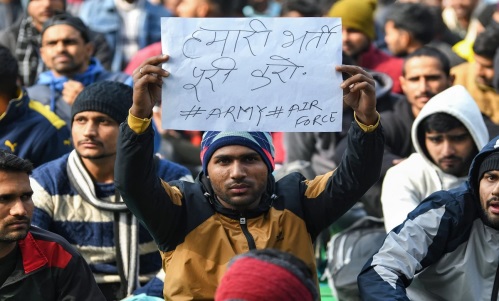 हमारी भर्ती
पूरी करो.
#ARMY#AIR
FORCE